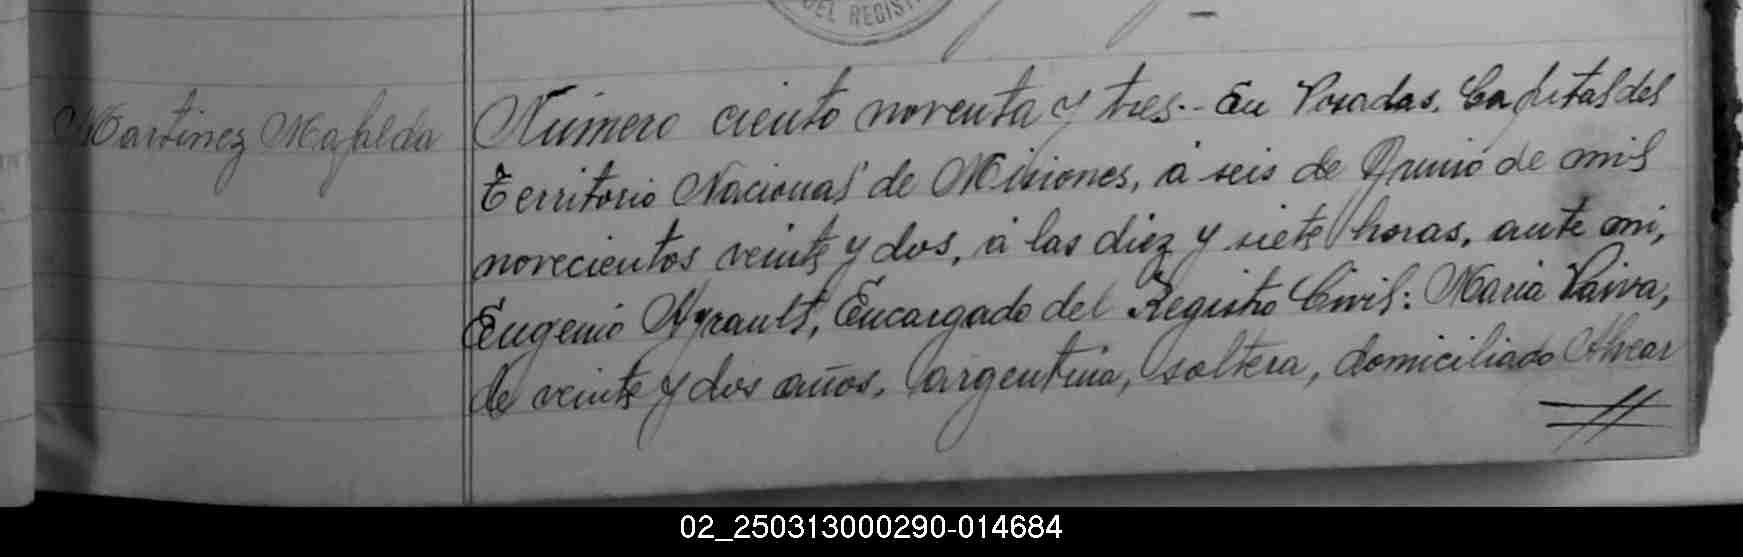 DEL REGIST
Martinez Mafalda
Número ciento noventa y tres.- En Posadas, Capital del
Territorio Nacional de Misiones, á seis de Junio de mil
novecientos veinte y dos, á las diez y siete horas, ante mi,
Eugenio Ayrault, Encargado del Registro Civil: Maria Paiva,
de veinte y dos años, argentina, soltera, domiciliado Alvear
02_250313000290-014684